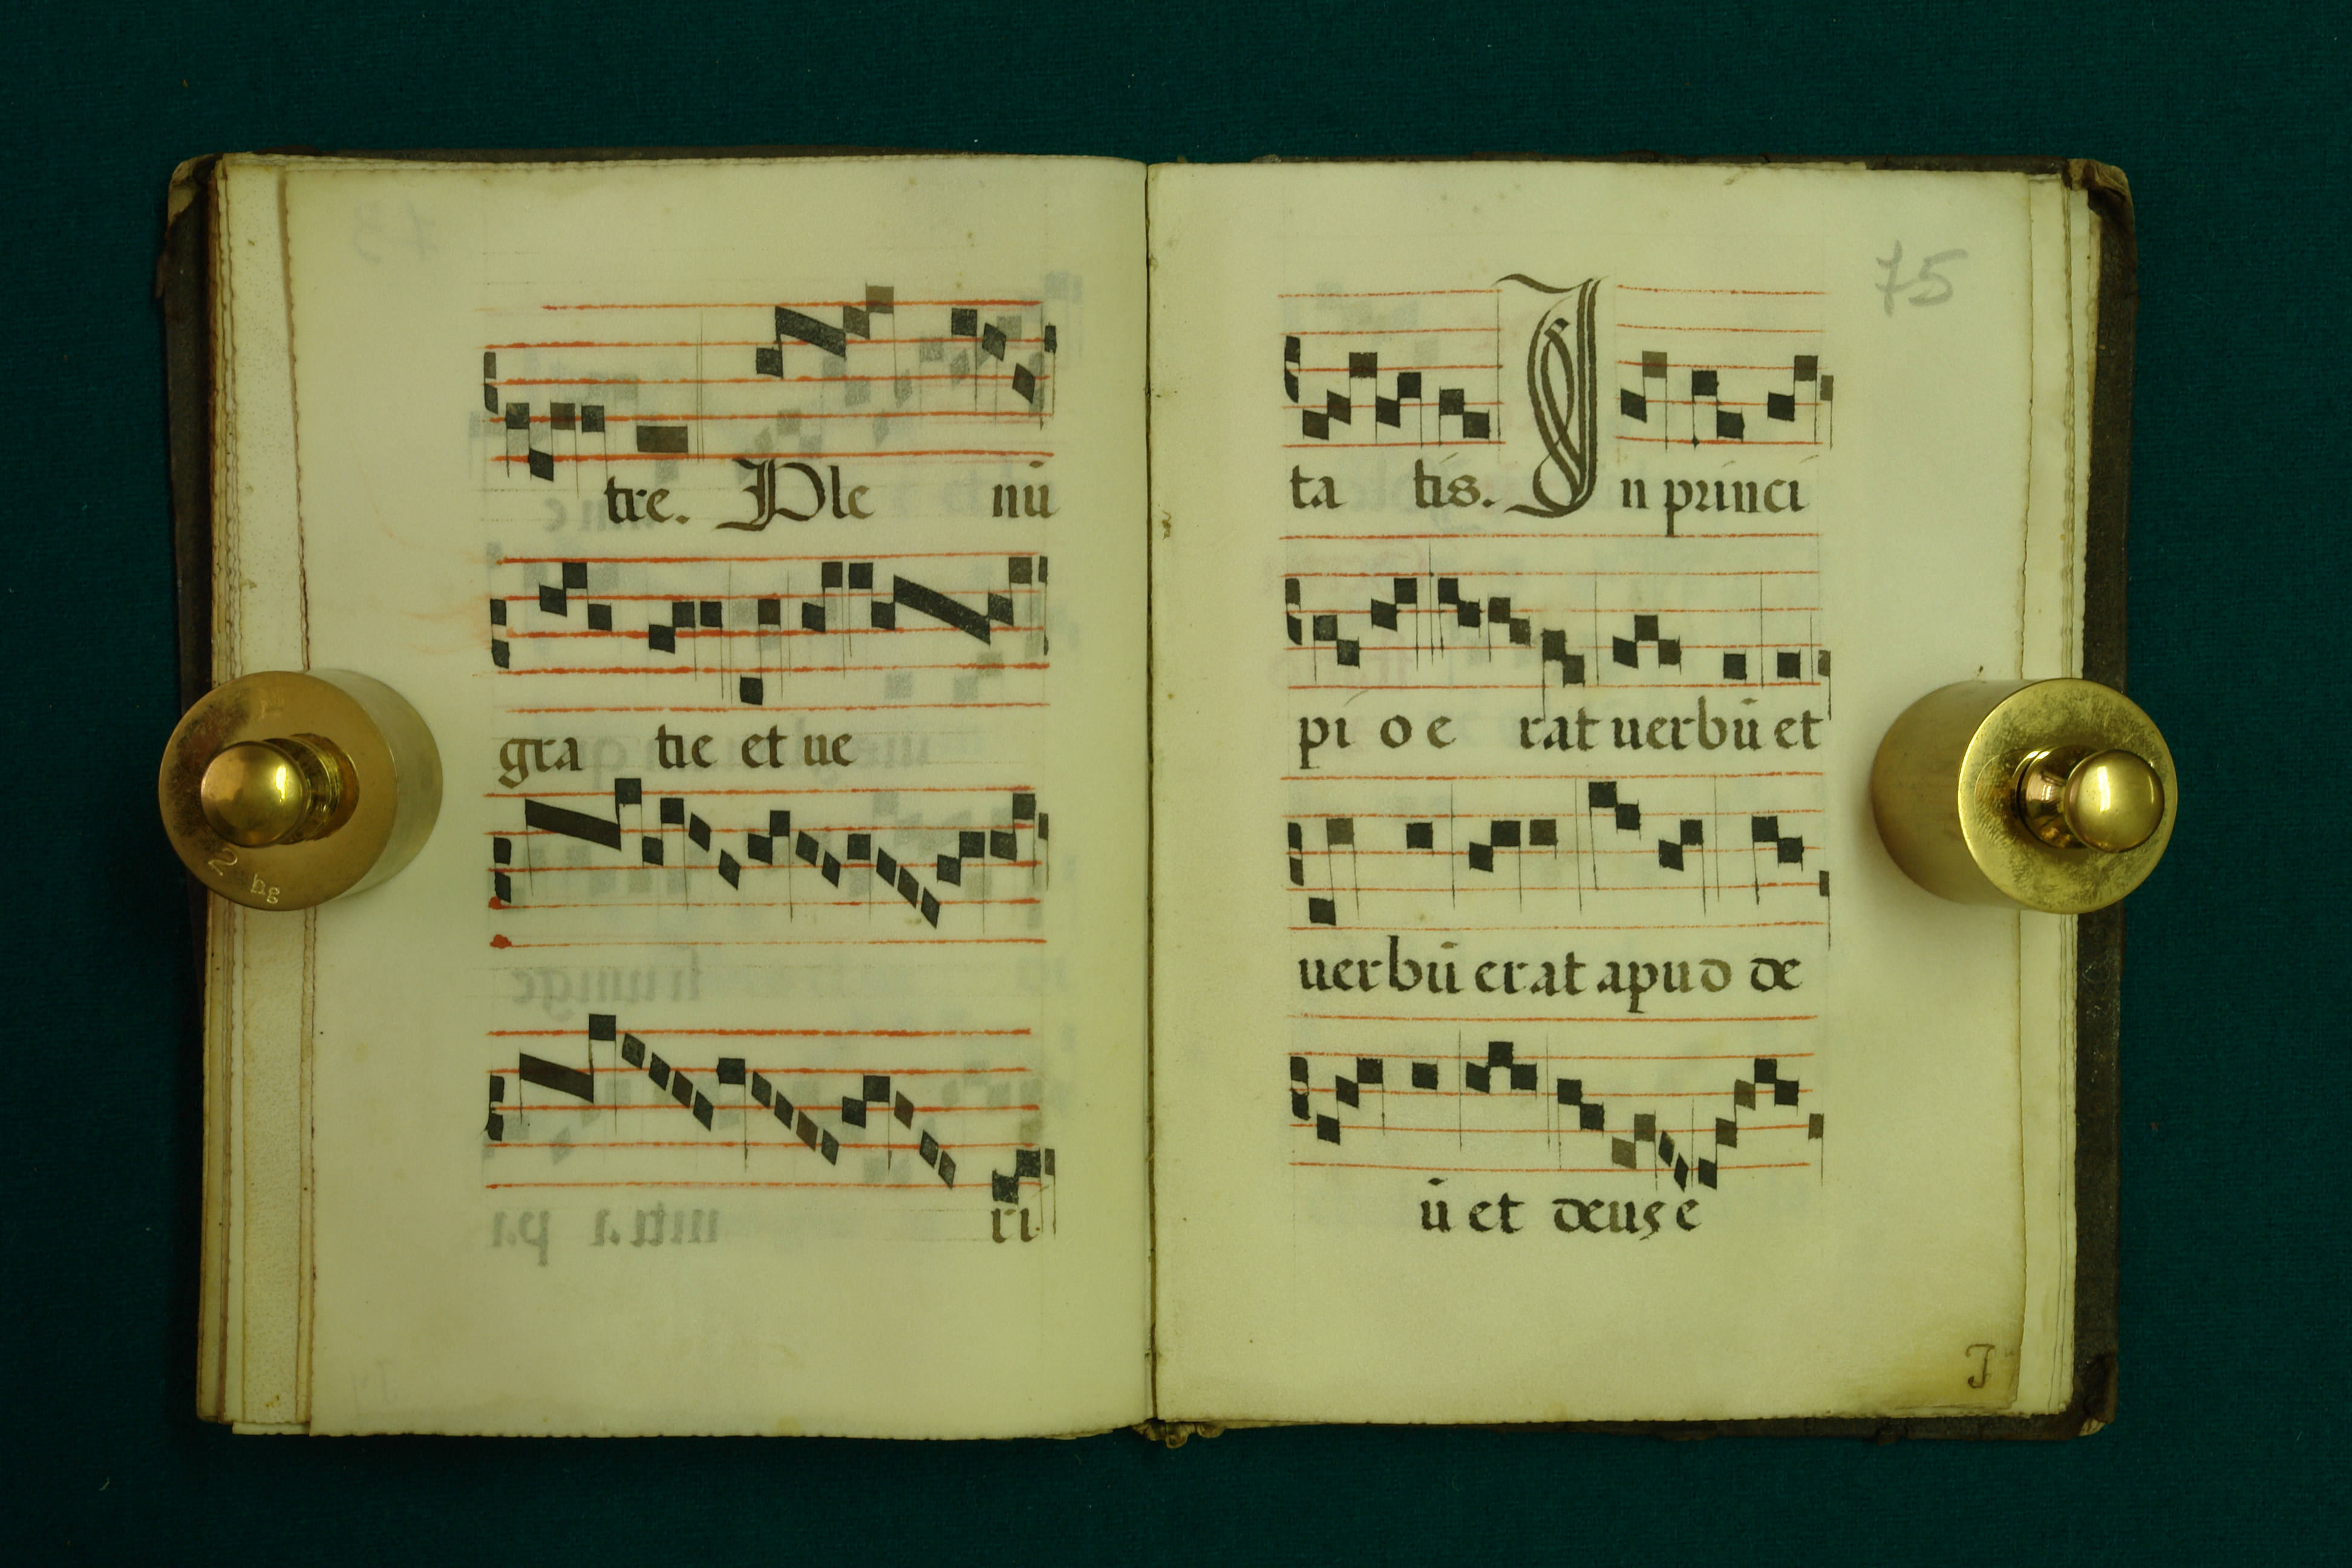 tre. Ple nū
gra tie et ue
ri
75
ta tis. In princi
pi o e rat uerbū et
uerbū erat apud de
ū et deus e
J
2 hg